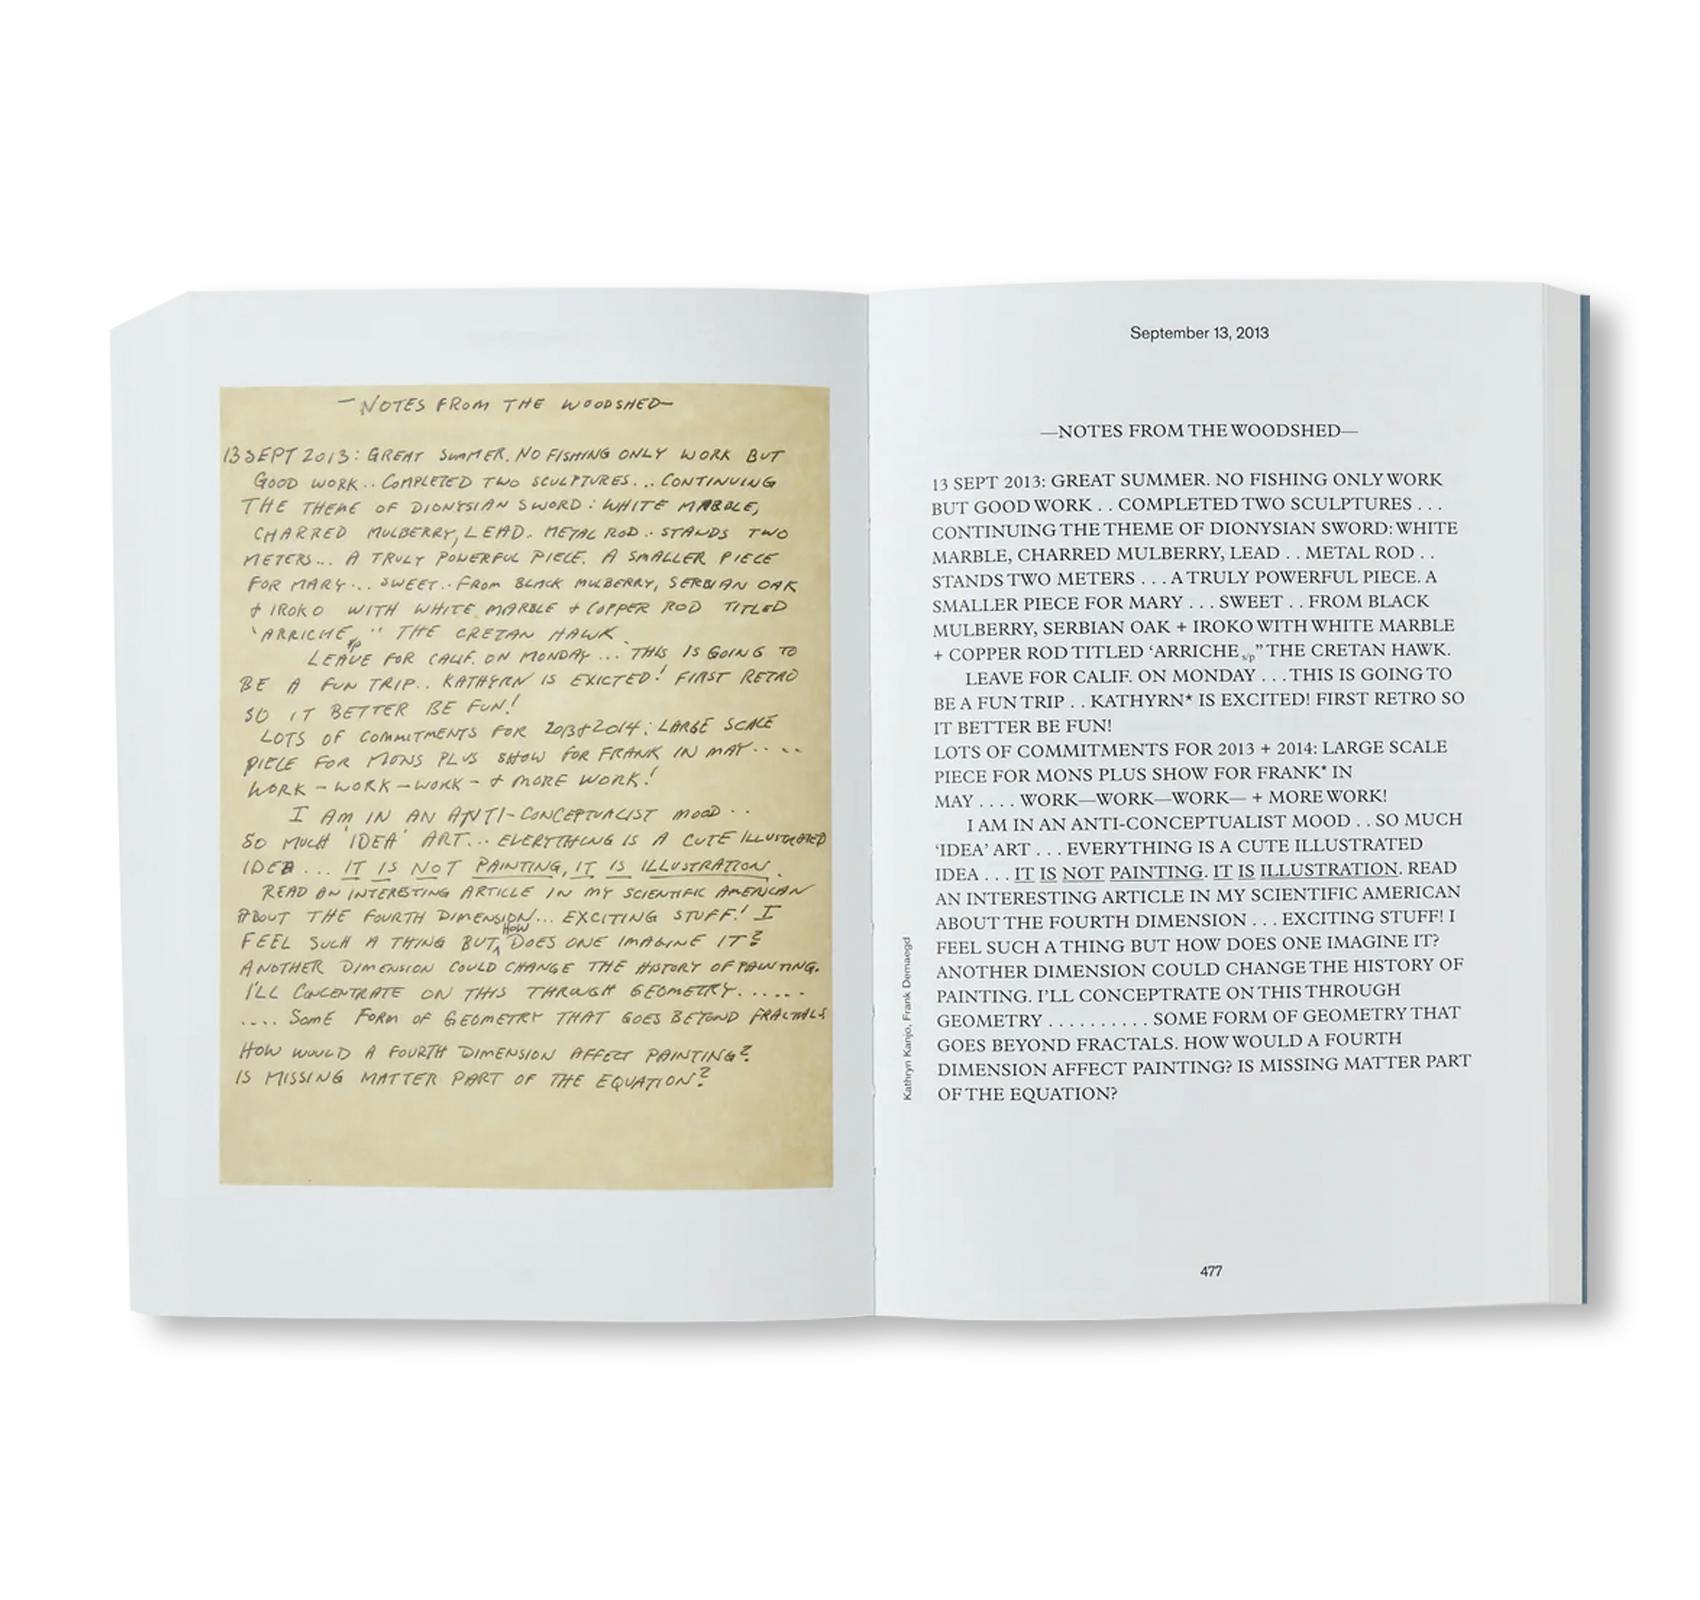 —NOTES FROM THE WOODSHED—
13 SEPT 2013: GREAT SUMMER. NO FISHING ONLY WORK BUT
GOOD WORK.. COMPLETED TWO SCULPTURES... CONTINUING
THE THEME OF DIONYSIAN SWORD: WHITE MARBLE,
CHARRED MULBERRY, LEAD.. METAL ROD.. STANDS TWO
METERS... A TRULY POWERFUL PIECE. A SMALLER PIECE
FOR MARY... SWEET.. FROM BLACK MULBERRY, SERBIAN OAK
+ IROKO WITH WHITE MARBLE + COPPER ROD TITLED
'ARRICHE s/p " THE CRETAN HAWK.
LEAVE FOR CALIF. ON MONDAY... THIS IS GOING TO
BE A FUN TRIP.. KATHYRN IS EXICTED! FIRST RETRO
SO IT BETTER BE FUN!
LOTS OF COMMITMENTS FOR 2013+2014: LARGE SCALE
PIECE FOR MONS PLUS SHOW FOR FRANK IN MAY.....
WORK—WORK—WORK—+ MORE WORK!
I AM IN AN ANTI-CONCEPTUALIST MOOD..
SO MUCH 'IDEA' ART... EVERYTHING IS A CUTE ILLUSTRATED
IDEA... IT IS NOT PAINTING, IT IS ILLUSTRATION.
READ AN INTERESTING ARTICLE IN MY SCIENTIFIC AMERICAN
ABOUT THE FOURTH DIMENSION... EXCITING STUFF! I
FEEL SUCH A THING BUT HOW DOES ONE IMAGINE IT?
ANOTHER DIMENSION COULD CHANGE THE HISTORY OF PAINTING.
I'LL CONCENTRATE ON THIS THROUGH GEOMETRY......
.... SOME FORM OF GEOMETRY THAT GOES BEYOND FRACTALS
HOW WOULD A FOURTH DIMENSION AFFECT PAINTING?
IS MISSING MATTER PART OF THE EQUATION?
September 13, 2013
—NOTES FROM THE WOODSHED—
13 SEPT 2013: GREAT SUMMER. NO FISHING ONLY WORK
BUT GOOD WORK . . COMPLETED TWO SCULPTURES . . .
CONTINUING THE THEME OF DIONYSIAN SWORD: WHITE
MARBLE, CHARRED MULBERRY, LEAD . . METAL ROD . .
STANDS TWO METERS . . . A TRULY POWERFUL PIECE. A
SMALLER PIECE FOR MARY . . . SWEET . . FROM BLACK
MULBERRY, SERBIAN OAK + IROKO WITH WHITE MARBLE
+ COPPER ROD TITLED ‘ARRICHE s/p ” THE CRETAN HAWK.
LEAVE FOR CALIF. ON MONDAY . . . THIS IS GOING TO
BE A FUN TRIP . . KATHYRN* IS EXCITED! FIRST RETRO SO
IT BETTER BE FUN!
LOTS OF COMMITMENTS FOR 2013 + 2014: LARGE SCALE
PIECE FOR MONS PLUS SHOW FOR FRANK* IN
MAY . . . . WORK—WORK—WORK— + MORE WORK!
I AM IN AN ANTI-CONCEPTUALIST MOOD . . SO MUCH
‘IDEA’ ART . . . EVERYTHING IS A CUTE ILLUSTRATED
IDEA . . . IT IS NOT PAINTING. IT IS ILLUSTRATION. READ
AN INTERESTING ARTICLE IN MY SCIENTIFIC AMERICAN
ABOUT THE FOURTH DIMENSION . . . EXCITING STUFF! I
FEEL SUCH A THING BUT HOW DOES ONE IMAGINE IT?
ANOTHER DIMENSION COULD CHANGE THE HISTORY OF
PAINTING. I’LL CONCEPTRATE ON THIS THROUGH
GEOMETRY . . . . . . . . . . SOME FORM OF GEOMETRY THAT
GOES BEYOND FRACTALS. HOW WOULD A FOURTH
DIMENSION AFFECT PAINTING? IS MISSING MATTER PART
OF THE EQUATION?
Kathryn Kanjo, Frank Demaegd
477